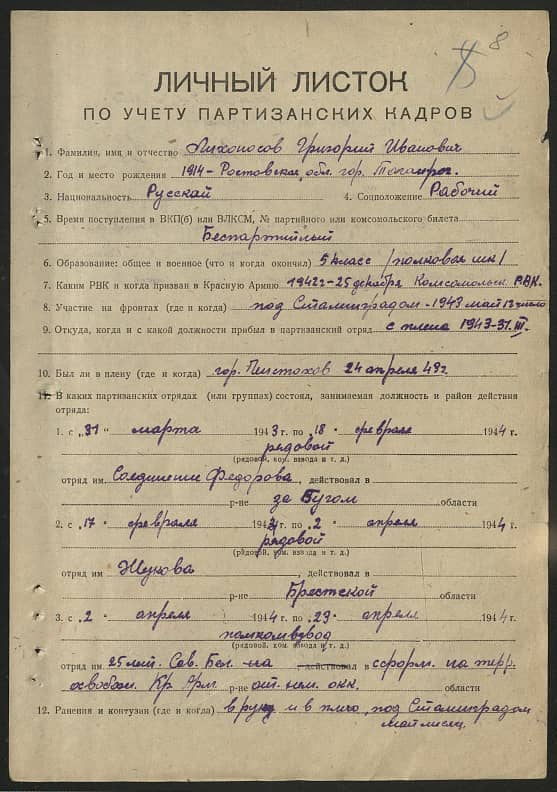 8
ЛИЧНЫЙ ЛИСТОК
ПО УЧЕТУ ПАРТИЗАНСКИХ КАДРОВ
1. Фамилия, имя и отчество Лихоносов Григорий Иванович
2. Год и место рождения 1914 - Ростовская обл. гор. Таганрог.
3. Национальность Русский 4. Соцположение Рабочий
5. Время поступления в ВКП(б) или ВЛКСМ, № партийного или комсомольского билета
Беспартийный
6. Образование: общее и военное (что и когда окончил) 5 класс /полковая шк/
7. Каким РВК и когда призван в Красную Армию 1942 г - 25 декабря Комсомольск. РВК.
8. Участие на фронтах (где и когда) под Сталинградом - 1943 май 12 число
9. Откуда, когда и с какой должности прибыл в партизанский отряд с плена 1943 - 31. III.
10. Был ли в плену (где и когда) гор. 24 апреля 43 г.
11. В каких партизанских отрядах (или группах) состоял, занимаемая должность и район действия
отряда:
1. с „31" марта 1943 г. по „18" февраля 1944 г.
рядовой
(рядовой, ком. взвода и т. д.)
отряд им Соединение Федорова, действовал в
р-не за Бугом области
2. с „17" февраля 1944 г. по „2" апреля 1944 г.
рядовой
(рядовой, ком. взвода и т. д.)
отряд им Жукова, действовал в
р-не Брестской области
3. с „2" апреля 1944 г. по „29" апреля 1944 г.
помкомвзвод
(рядовой, ком. взвода и т. д.)
отряд им 25 лет. Сов. Бел. на действовал в сформ. на терр.
освобожд. Кр. Арм. р-не области
12. Ранения и контузии (где и когда) в руку и в плечо, под Сталинградом
май месяц.